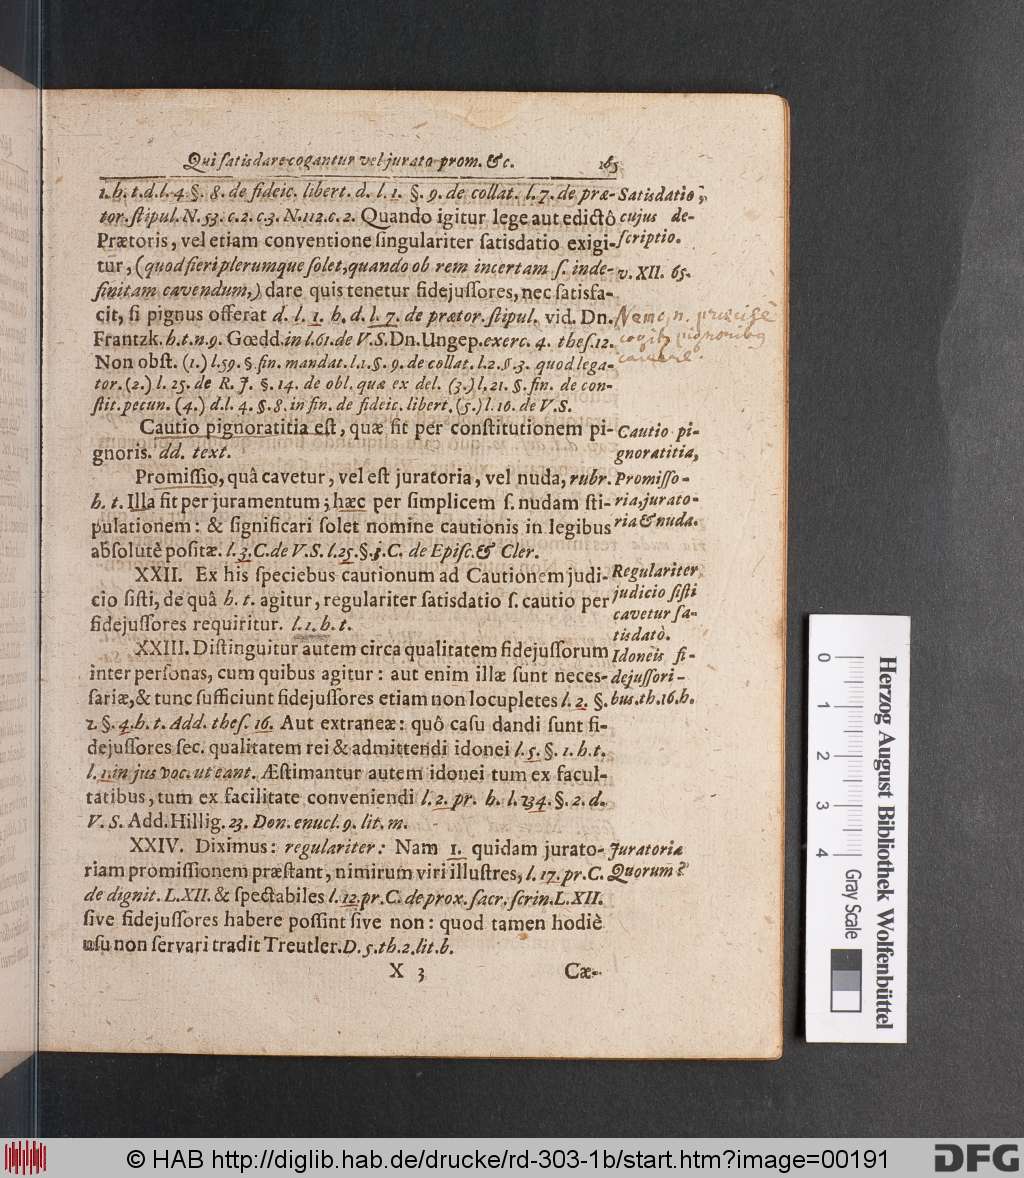 Qui satisdare cogantur vel jurato prom. &c. 165
1. h. t. d. l. 4. §. 8. de fideic. libert. d. l. 1. §. 9. de collat. l. 7. de præ-
tor. stipul. N. 53. c. 2. c. 3. N. 112. c. 2. Quando igitur lege aut edictô
Prætoris, vel etiam conventione singulariter satisdatio exigi-
tur, (quod fieri plerumque solet, quando ob rem incertam s. inde-
finitam cavendum,) dare quis tenetur fidejussores, nec satisfa-
cit, si pignus offerat d. l. 1. h. d. l. 7. de prætor. stipul. vid. Dn.
Frantzk. h. t. n. 9. Gœdd. in l. 61. de V. S. Dn. Ungep. exerc. 4. thes. 12.
Non obst. (1.) l. 59. §. fin. mandat. l. 1. §. 9. de collat. l. 2. §. 3. quod lega-
tor. (2.) l. 25. de R. J. §. 14. de obl. quæ ex del. (3.) l. 21. §. fin. de con-
stit. pecun. (4.) d. l. 4. §. 8. in fin. de fideic. libert. (5.) l. 16. de V. S.
Satisdatio,
cujus de-
scriptio.
v. XII. 65.
Nemo n. præcisè
cogit pignoribus
cavere.
Cautio pignoratitia est, quæ fit per constitutionem pi-
gnoris. dd. text.
Cautio pi-
gnoratitia,
Promissio, quâ cavetur, vel est juratoria, vel nuda, rubr.
h. t. Illa fit per juramentum; hæc per simplicem s. nudam sti-
pulationem: & significari solet nomine cautionis in legibus
absolutè positæ. l. 3. C. de V. S. l. 25. §. j. C. de Episc. & Cler.
Promisso-
ria, jurato-
ria & nuda.
XXII. Ex his speciebus cautionum ad Cautionem judi-
cio sisti, de quâ h. t. agitur, regulariter satisdatio s. cautio per
fidejussores requiritur. l. 1. h. t.
Regulariter
judicio sisti
cavetur sa-
tisdatò.
XXIII. Distinguitur autem circa qualitatem fidejussorum
inter personas, cum quibus agitur: aut enim illæ sunt neces-
sariæ, & tunc sufficiunt fidejussores etiam non locupletes l. 2. §.
2. §. 4. h. t. Add. thes. 16. Aut extraneæ: quô casu dandi sunt fi-
dejussores sec. qualitatem rei & admittendi idonei l. 5. §. 1. h. t.
l. 1. in jus voc. ut eant. Æstimantur autem idonei tum ex facul-
tatibus, tum ex facilitate conveniendi l. 2. pr. h. l. 234. §. 2. d.
V. S. Add. Hillig. 23. Don. enucl. 9. lit. m.
Idoneis fi-
dejussori-
bus. th. 16. h.
XXIV. Diximus: regulariter: Nam 1. quidam jurato-
riam promissionem præstant, nimirum viri illustres, l. 17. pr. C.
de dignit. L. XII. & spectabiles l. 12. pr. C. de prox. sacr. scrin. L. XII.
sive fidejussores habere possint sive non: quod tamen hodiè
usu non servari tradit Treutler. D. 5. th. 2. lit. b.
Juratoria
Quorum?
X 3 Cæ-
0 1 2 3 4
Herzog August Bibliothek Wolfenbüttel
Gray Scale
© HAB http://diglib.hab.de/drucke/rd-303-1b/start.htm?image=00191
DFG